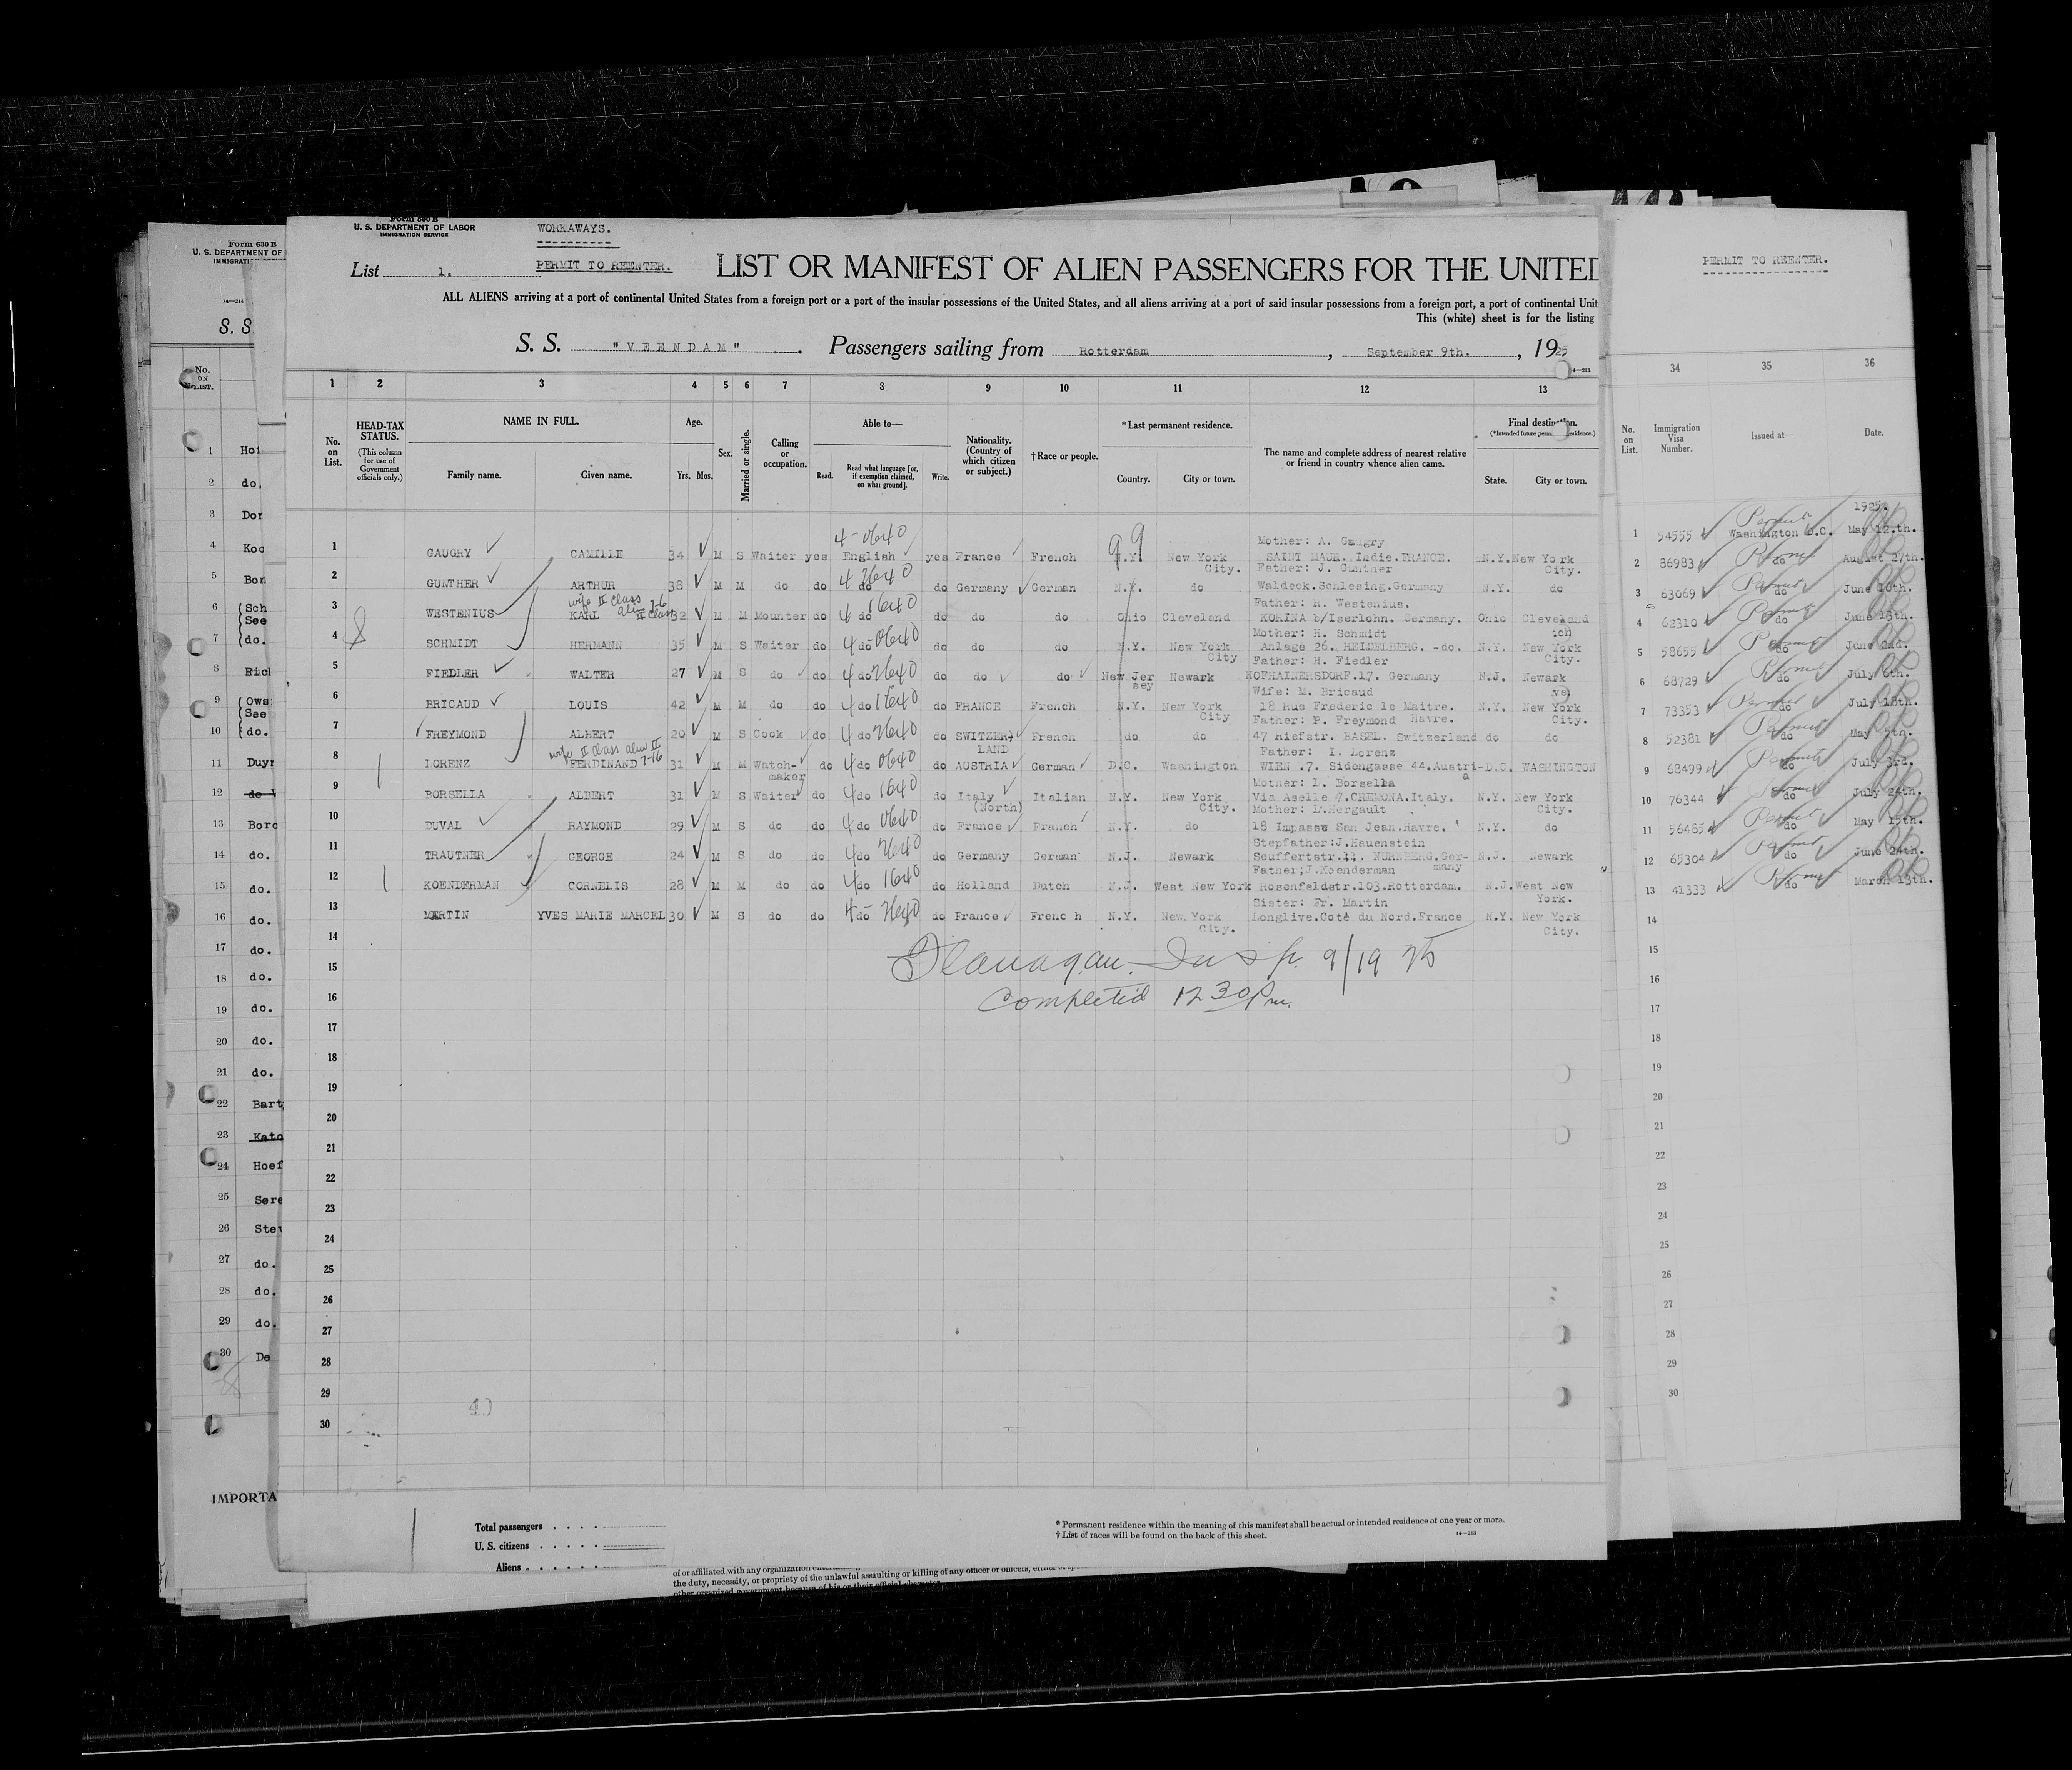 Form 630 B
U. S. DEPARTMENT OF LABOR
IMMIGRATION SERVICE
WORKAWAYS.
List 1. PERMIT TO REENTER.
LIST OR MANIFEST OF ALIEN PASSENGERS FOR THE UNITED
ALL ALIENS arriving at a port of continental United States from a foreign port or a port of the insular possessions of the United States, and all aliens arriving at a port of said insular possessions from a foreign port, a port of continental Unit
This (white) sheet is for the listing
S. S. "VEENDAM". Passengers sailing from Rotterdam, September 9th., 1925
1 2 3 4 5 6 7 8 9 10 11 12 13
No. on List.
HEAD-TAX STATUS. (This column for use of Government officials only.)
NAME IN FULL. Family name. Given name.
Age. Yrs. Mos.
Sex.
Married or single.
Calling or occupation.
Able to— Read. Read what language [or, if exemption claimed, on what ground]. Write.
Nationality. (Country of which citizen or subject.)
† Race or people.
* Last permanent residence. Country. City or town.
The name and complete address of nearest relative or friend in country whence alien came.
Final destination. State. City or town.
1 GAUGRY CAMILLE 34 M S Waiter yes English yes France French N.Y. New York City. Mother: A. Gaugry SAINT MAUR. Indie. FRANCE. N.Y. New York City.
2 GUNTHER ARTHUR 38 M M do do do do Germany German N.Y. do Father: J. Gunther Waldeck.Schlesing.Germany N.Y. do
wife II Class
3 WESTENIUS KARL 32 M M Mounter do do do do do Ohio Cleveland Father: H. Westenius. KORINA b/Iserlohn. Germany. Ohio Cleveland
4 SCHMIDT HERMANN 35 M S Waiter do do do do do N.Y. New York City Mother: H. Schmidt Anlage 26. HEIDELBERG. -do. N.Y. New York City.
5 FIEDLER WALTER 27 M S do do do do do do New Jersey Newark Father: H. Fiedler HOFHAINERSDORF.17. Germany N.J. Newark
6 BRICAUD LOUIS 42 M M do do do do FRANCE French N.Y. New York City Wife: M. Bricaud 18 Rue Frederic le Maitre. Havre. N.Y. New York City.
7 FREYMOND ALBERT 20 M S Cook do do do SWITZERLAND French do do Father: P. Freymond 47 Riefstr. BASEL. Switzerland do do
wife II Class
8 LORENZ FERDINAND 31 M M Watchmaker do do do AUSTRIA German D.C. Washington Father: I. Lorenz WIEN .7. Sidengasse 44.Austria D.C. WASHINGTON
9 BORSELLA ALBERT 31 M S Waiter do do do Italy (North) Italian N.Y. New York City. Mother: I. Borsella Via Aselle 7.CREMONA.Italy. N.Y. New York City.
10 DUVAL RAYMOND 29 M S do do do do France French N.Y. do Mother: E.Hergault 18 Impasse San Jean.Havre. N.Y. do
11 TRAUTNER GEORGE 24 M S do do do do Germany German N.J. Newark Stepfather:J.Hauenstein Seuffertstr.11. NURNBERG.Germany N.J. Newark
12 KOENDERMAN CORNELIS 28 M M do do do do Holland Dutch N.J. West New York Father;J.Koenderman Rosenfeldstr.103.Rotterdam. N.J. West New York.
13 MARTIN YVES MARIE MARCEL 30 M S do do do do France French N.Y. New York City. Sister: Fr. Martin Longlive.Coté du Nord.France N.Y. New York City.
Flanagan. Insp. 9/19 25
Completed 12 30 Pm.
14
15
16
17
18
19
20
21
22
23
24
25
26
27
28
29
30
Total passengers
U. S. citizens
Aliens
* Permanent residence within the meaning of this manifest shall be actual or intended residence of one year or more.
† List of races will be found on the back of this sheet.
14—213
the duty, necessity, or propriety of the unlawful assaulting or killing of any officer or officers,
PERMIT TO REENTER.
34 35 36
No. on List. Immigration Visa Number. Issued at— Date.
1925.
1 54555 Permit Washington D.C. May 12.th.
2 86983 Permit do August 27th.
3 63069 Permit do June 16th.
4 62310 Permit do June 15th.
5 58655 Permit do June 2nd.
6 68729 Permit do July 6th.
7 73353 Permit do July 18th.
8 52381 Permit do May
9 68499 Permit do July 3rd.
10 76344 Permit do July 24th.
11 56485 Permit do May 15th.
12 65304 Permit do June 24th.
13 41333 Permit do March 13th.
14
15
16
17
18
19
20
21
22
23
24
25
26
27
28
29
30
Form 630 B
U. S. DEPARTMENT OF
IMMIGRATI
S. S
No. ON LIST.
1 Hoi
2 do.
3 Dor
4 Koc
5 Bon
6 (Sch
See
7 (do.
8 Rich
9 (Ows
See
10 (do.
11 Duyr
12
13 Boro
14 do.
15 do.
16 do.
17 do.
18 do.
19 do.
20 do.
21 do.
22 Bart
23 Kato
24 Hoef
25 Sere
26 Stev
27 do.
28 do.
29 do.
30 De
IMPORTA